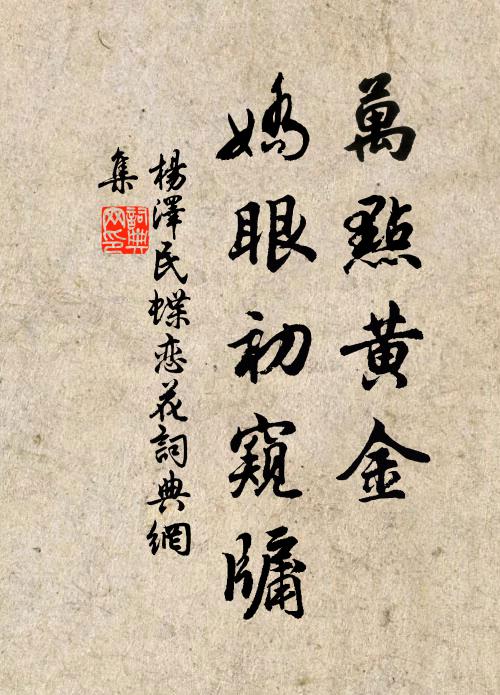 萬點黃金
嬌眼初窺牖
楊澤民蝶恋花詞典網
集
詞典
网印